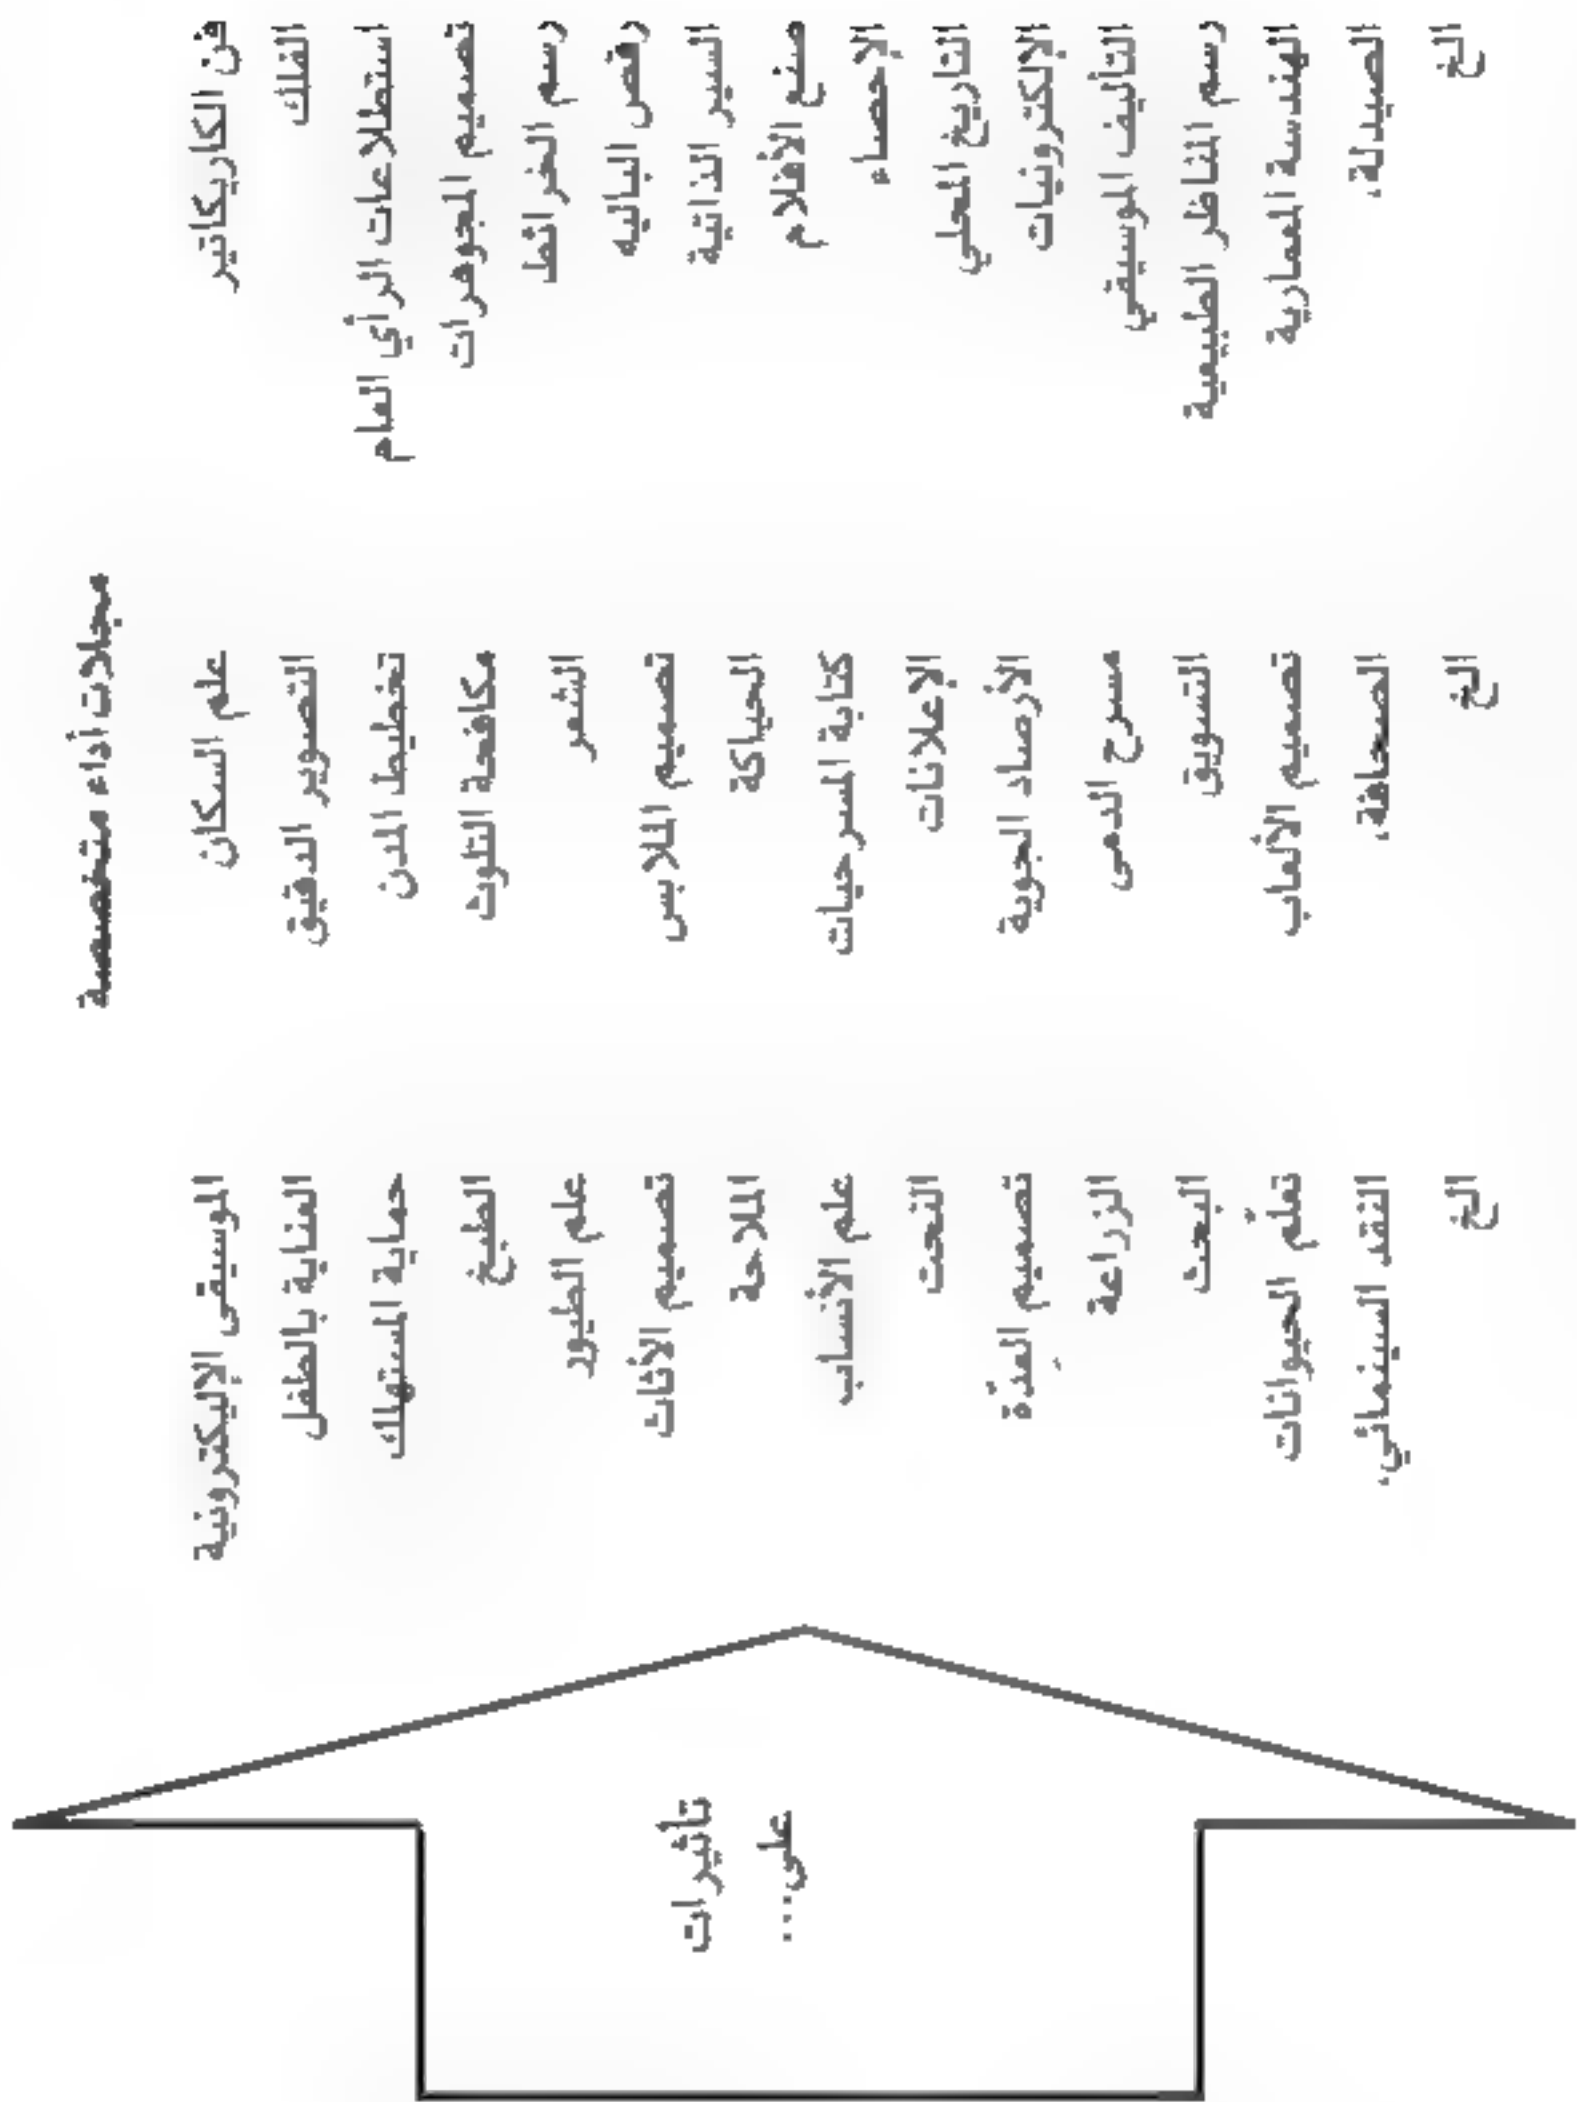 مجالات أداء متخصصة
فن الكاريكاتير
الفلك
استطلاعات الرأي العام
تصميم المجوهرات
رسم الخرائط
رقص الباليه
السير الذاتية
صنع الأفلام
الإحصاء
التاريخ المحلي
الإلكترونيات
التأليف الموسيقي
رسم المناظر الطبيعية
الهندسة المعمارية
الصيدلة،
الخ
علم السكان
التصوير الدقيق
تخطيط المدن
مكافحة التلوث
الشعر
تصميم الملابس
الحياكة
كتابة المسرحيات
الإعلانات
الأرصاد الجوية
مسرح الدمى
التسويق
تصميم الألعاب
الصحافة،
الخ
الموسيقى الإليكترونية
العناية بالطفل
حماية المستهلك
الطبخ
علم الطيور
تصميم الأثاث
الملاحة
علم الأنساب
النحت
تصميم العِدّة
الزراعة
البحث
تعلّم الحيوانات
النقد السينمائي،
الخ
تأثيرات
على...